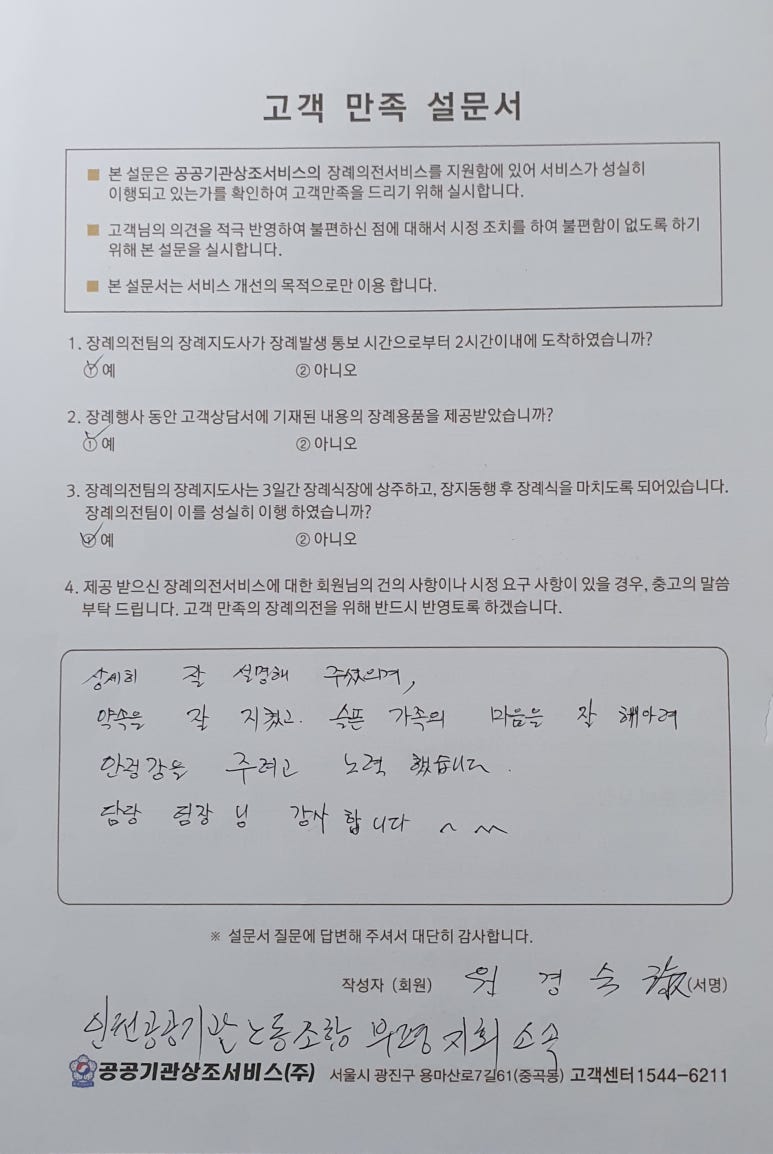 고객 만족 설문서
■ 본 설문은 공공기관상조서비스의 장례의전서비스를 지원함에 있어 서비스가 성실히
이행되고 있는가를 확인하여 고객만족을 드리기 위해 실시합니다.
■ 고객님의 의견을 적극 반영하여 불편하신 점에 대해서 시정 조치를 하여 불편함이 없도록 하기
위해 본 설문을 실시합니다.
■ 본 설문서는 서비스 개선의 목적으로만 이용 합니다.
1. 장례의전팀의 장례지도사가 장례발생 통보 시간으로부터 2시간이내에 도착하였습니까?
① 예 ② 아니오
2. 장례행사 동안 고객상담서에 기재된 내용의 장례용품을 제공받았습니까?
① 예 ② 아니오
3. 장례의전팀의 장례지도사는 3일간 장례식장에 상주하고, 장지동행 후 장례식을 마치도록 되어있습니다.
장례의전팀이 이를 성실히 이행 하였습니까?
① 예 ② 아니오
4. 제공 받으신 장례의전서비스에 대한 회원님의 건의 사항이나 시정 요구 사항이 있을 경우, 충고의 말씀
부탁 드립니다. 고객 만족의 장례의전을 위해 반드시 반영토록 하겠습니다.
상세히 잘 설명해 주셨으며,
약속을 잘 지켰고. 슬픈 가족의 마음을 잘 해아려
안정감을 주려고 노력 했습니다.
담당 팀장 님 감사 합니다 ~ ^^
※ 설문서 질문에 답변해 주셔서 대단히 감사합니다.
작성자 (회원) 원 경 숙 (서명)
인천공공기관노동조합 부평 지회 소속
공공기관상조서비스(주) 서울시 광진구 용마산로7길61(중곡동) 고객센터1544-6211